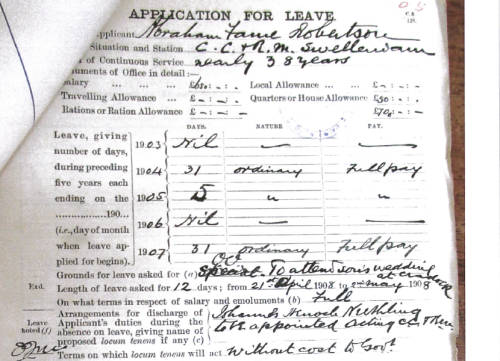 APPLICATION FOR LEAVE.
Applicant Abraham Faure Robertson
Situation and Station C.C. & R.M. Swellendam
of Continuous Service nearly 38 years
uments of Office in detail:—
Salary ... ... £650 : - : - Local Allowance ... £ - : - : -
Travelling Allowance ... £ - : - : - Quarters or House Allowance £50 : - : -
Rations or Ration Allowance £ - : - : - £700 : - : -
DAYS. NATURE PAY.
Leave, giving number of days, during preceding five years each ending on the
............... 190...
(i.e., day of month when leave applied for begins).
1903 Nil — —
1904 31 ordinary Full pay
1905 5 " "
1906 Nil — —
1907 31 ordinary Full pay
Grounds for leave asked for (a) special To attend son's wedding at
Length of leave asked for 12 days; from 21st April 1908 to 2nd May 1908
On what terms in respect of salary and emoluments (b) Full
Arrangements for discharge of Applicant's duties during the absence on leave, giving name of proposed locum tenens if any (c)
Johannes Henoch Neethling
to be appointed acting CC & RM
Exd.
Leave noted (f)
Terms on which locum tenens will act Without cost to Govt.